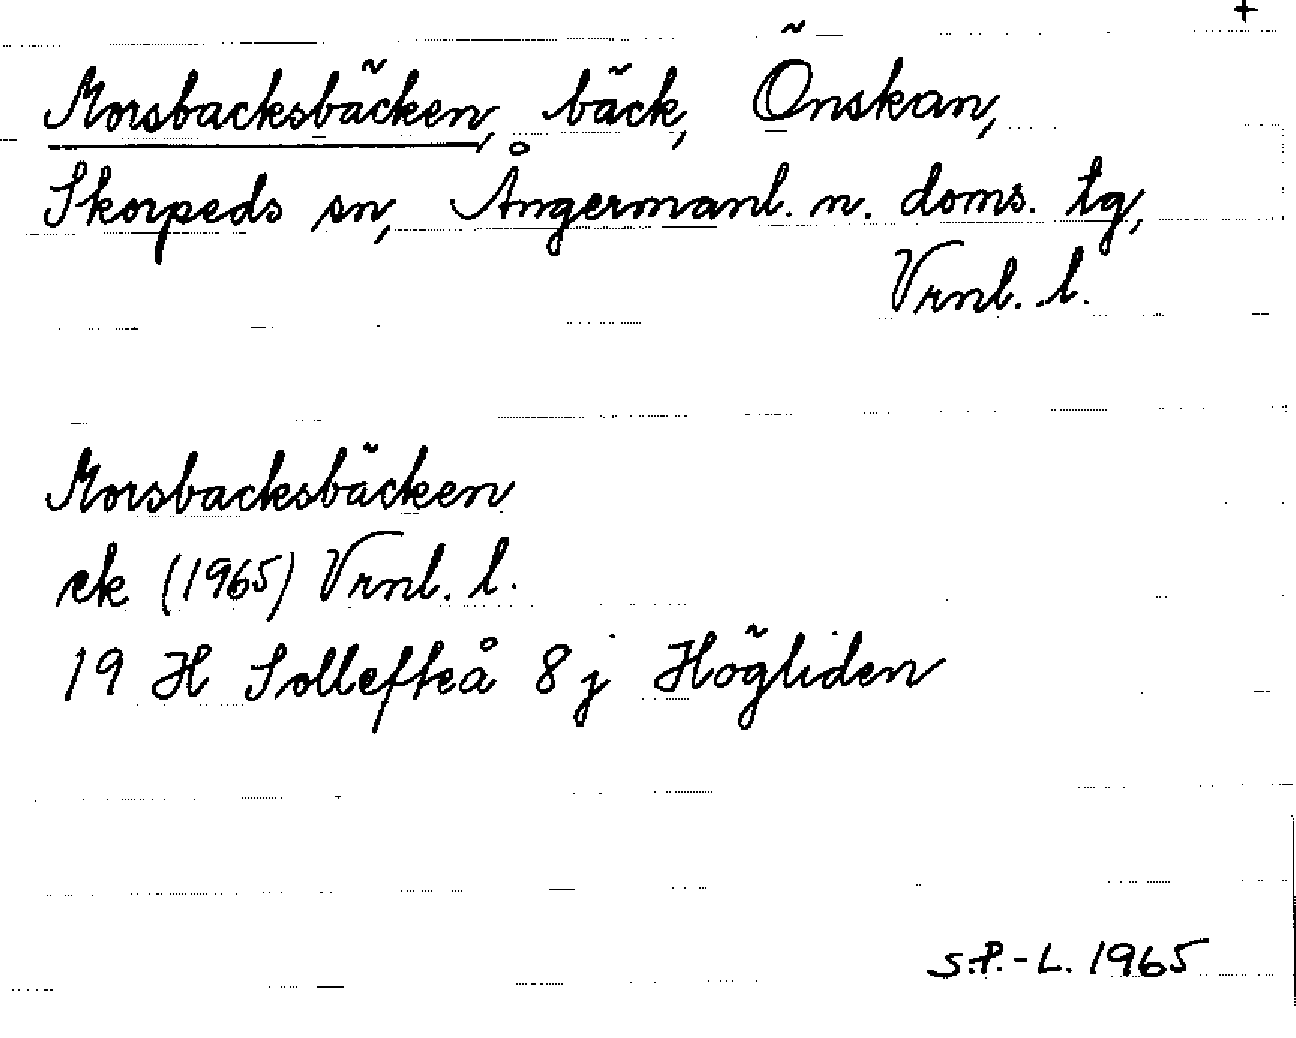 +
Morsbacksbäcken, bäck, Önskan,
Skorpeds sn, Ångermanl. n. doms. tg,
Vrnl. l.
Morsbacksbäcken
ek (1965) Vrnl. l.
19 H Sollefteå 8 j Högliden
S.P.-L. 1965